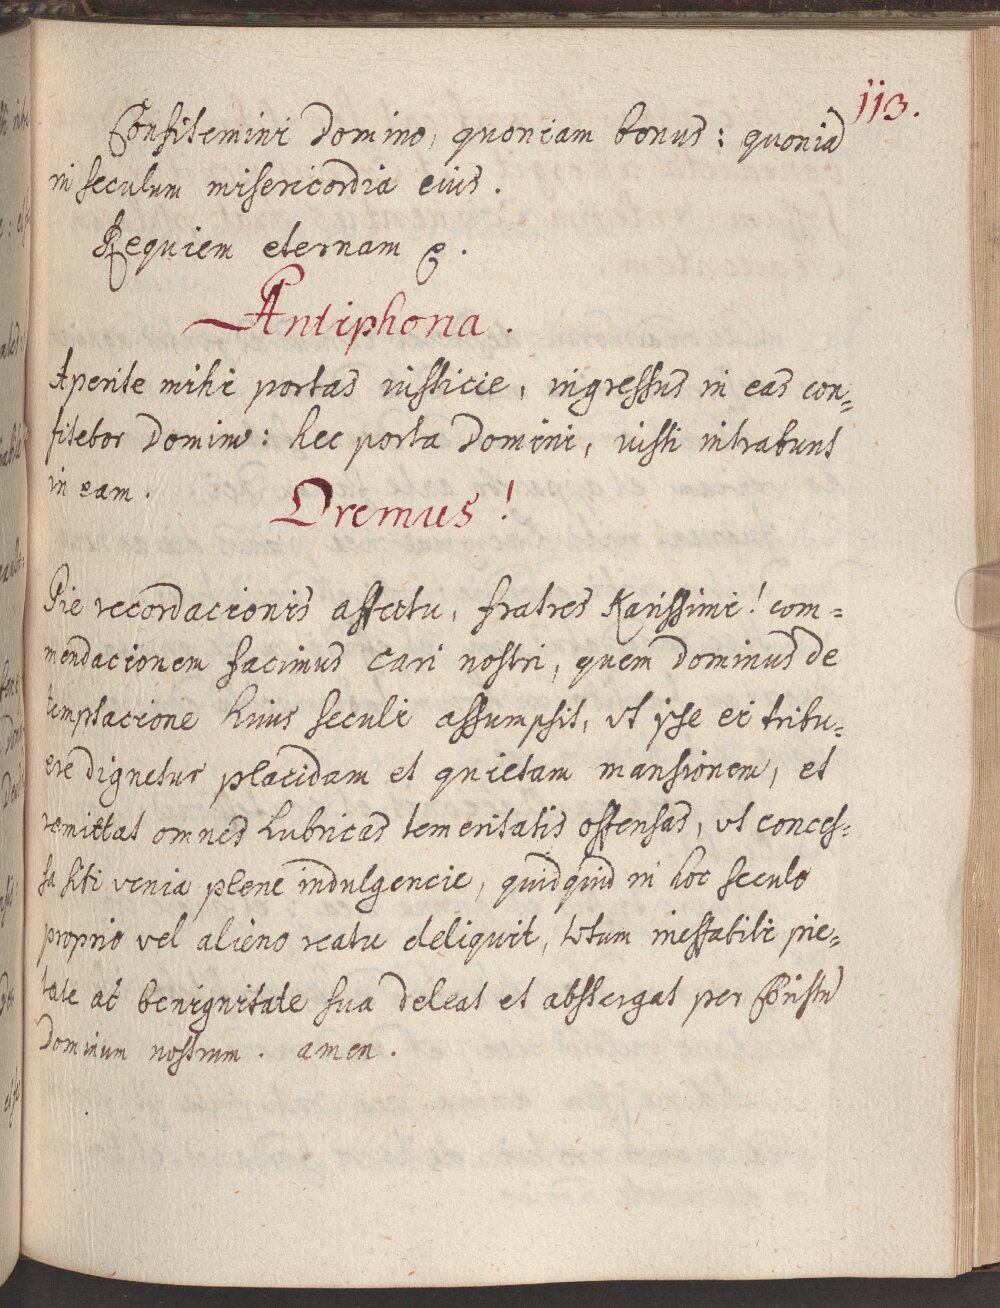 113.
Confitemini domino, quoniam bonus: quoniā
in seculum misericordia eius.
Requiem eternam &.
Antiphona.
Aperite mihi portas iusticie, ingressus in eas con=
fitebor domino: hec porta domini, iusti intrabunt
in eam.
Oremus!
Pie recordacionis affectu, fratres Karissimi! com=
mendacionem facimus cari nostri, quem dominus de
temptacione huius seculi assumpsit, vt ipse ei tribu=
ere dignetur placidam et quietam mansionem, et
remittat omnes lubricas temeritatis offensas, vt conces=
sa sibi venia plene indulgencie, quidquid in hoc seculo
proprio vel alieno reatu deliquit, totum ineffabili pie=
tate ac benignitate sua deleat et abstergat per Christū
dominum nostrum. amen.